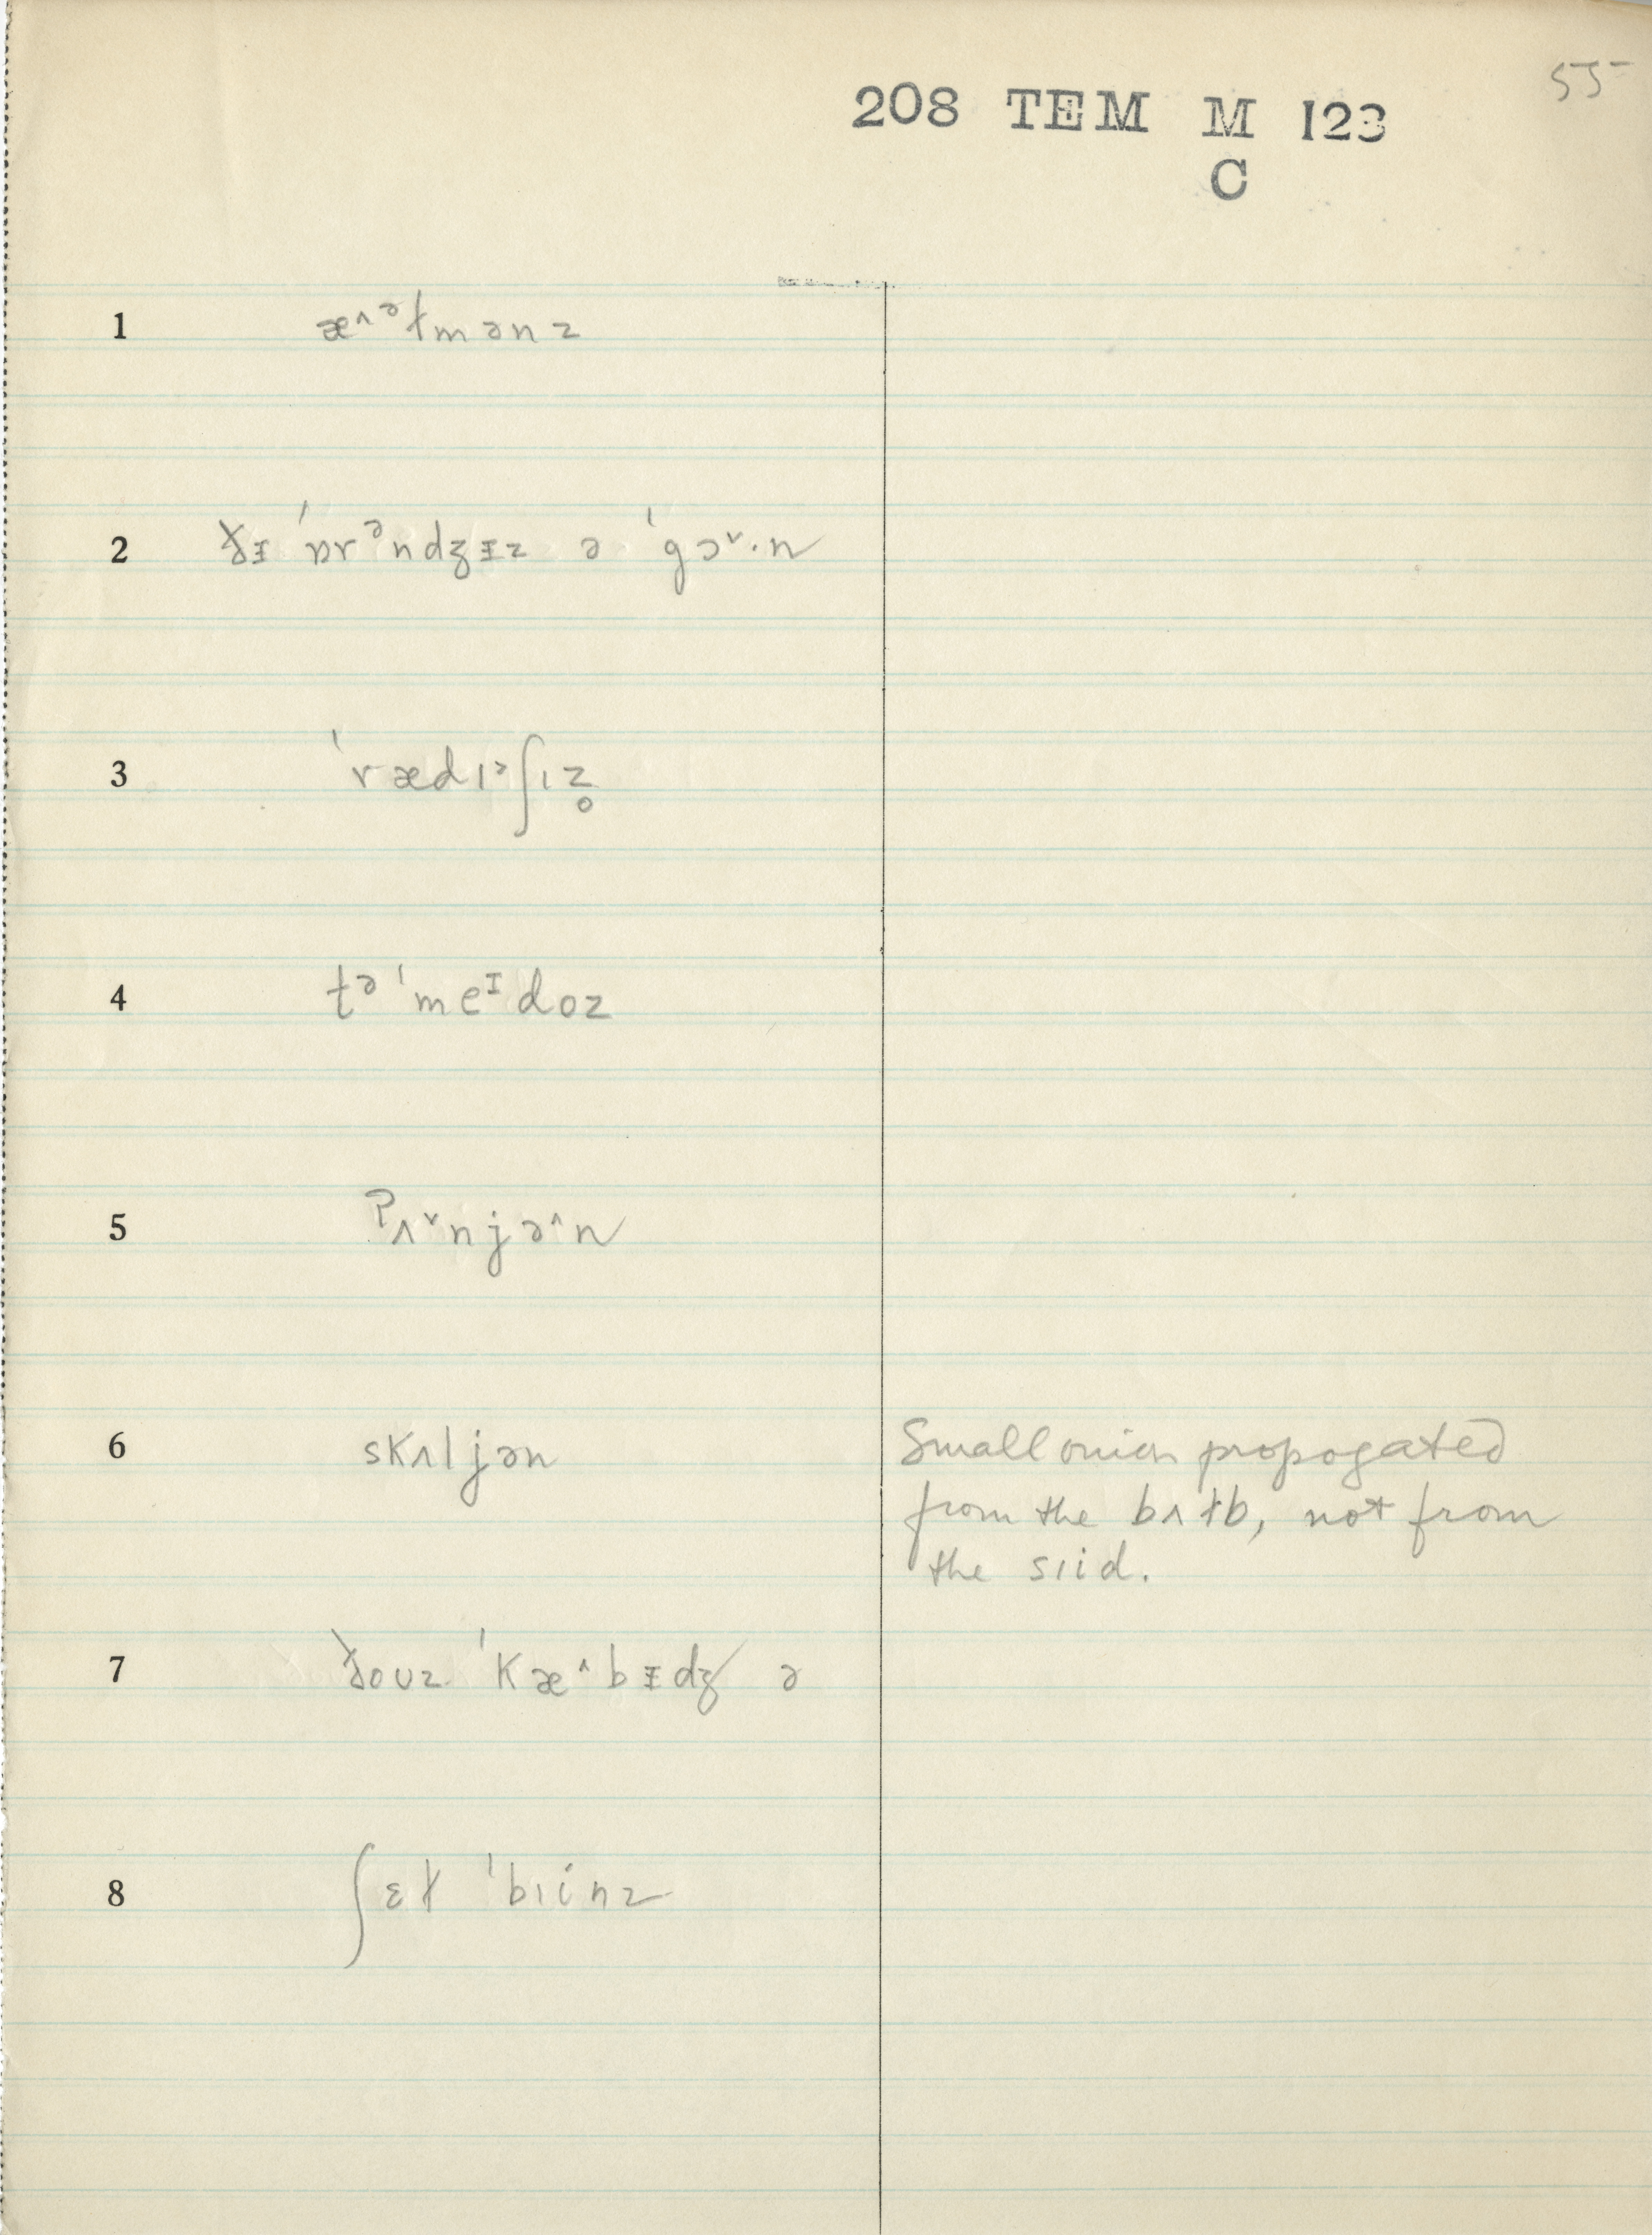 55
208 TEM M 123
C
1 æ^ᵊɫmənz
2 ðᵻ ˈɒrᵊndʒᵻz ə ˈgɔ˅·n
3 ˈrædɪᵊʃɪz̥
4 tə ˈmeᴵdoz
5 ʔʌ˅njə^n
6 skʌljən
Small onion propogated
from the bʌɫb, not from
the sɪid.
7 ðoʊz ˈkæ^bᵻdʒ ə
8 ʃɛɫ ˈbɪinz